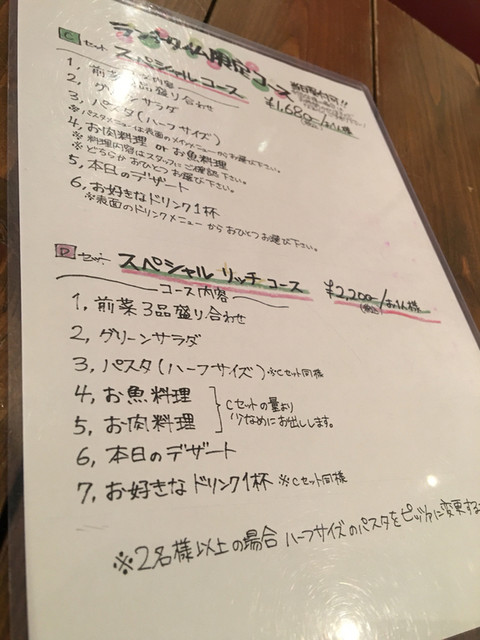 ランチタイム限定コース
C セット スペシャルコース ¥1,680-/お一人様
(税込)
コース内容
1, 前菜3品盛り合わせ
2, グリーンサラダ
3, パスタ(ハーフサイズ)
※パスタメニューは表面のメインメニューからお選び下さい。
4, お肉料理 or お魚料理
※料理内容はスタッフにご確認下さい。
※どちらかおひとつお選び下さい。
5, 本日のデザート
6, お好きなドリンク1杯
※表面のドリンクメニューからおひとつお選び下さい。
D セット スペシャル リッチ コース ¥2,200-/お一人様
(税込)
コース内容
1, 前菜3品盛り合わせ
2, グリーンサラダ
3, パスタ(ハーフサイズ) ※Cセット同様
4, お魚料理
5, お肉料理
Cセットの量より
少なめにお出しします。
6, 本日のデザート
7, お好きなドリンク1杯 ※Cセット同様
※2名様以上の場合 ハーフサイズのパスタをピッツァに変更する